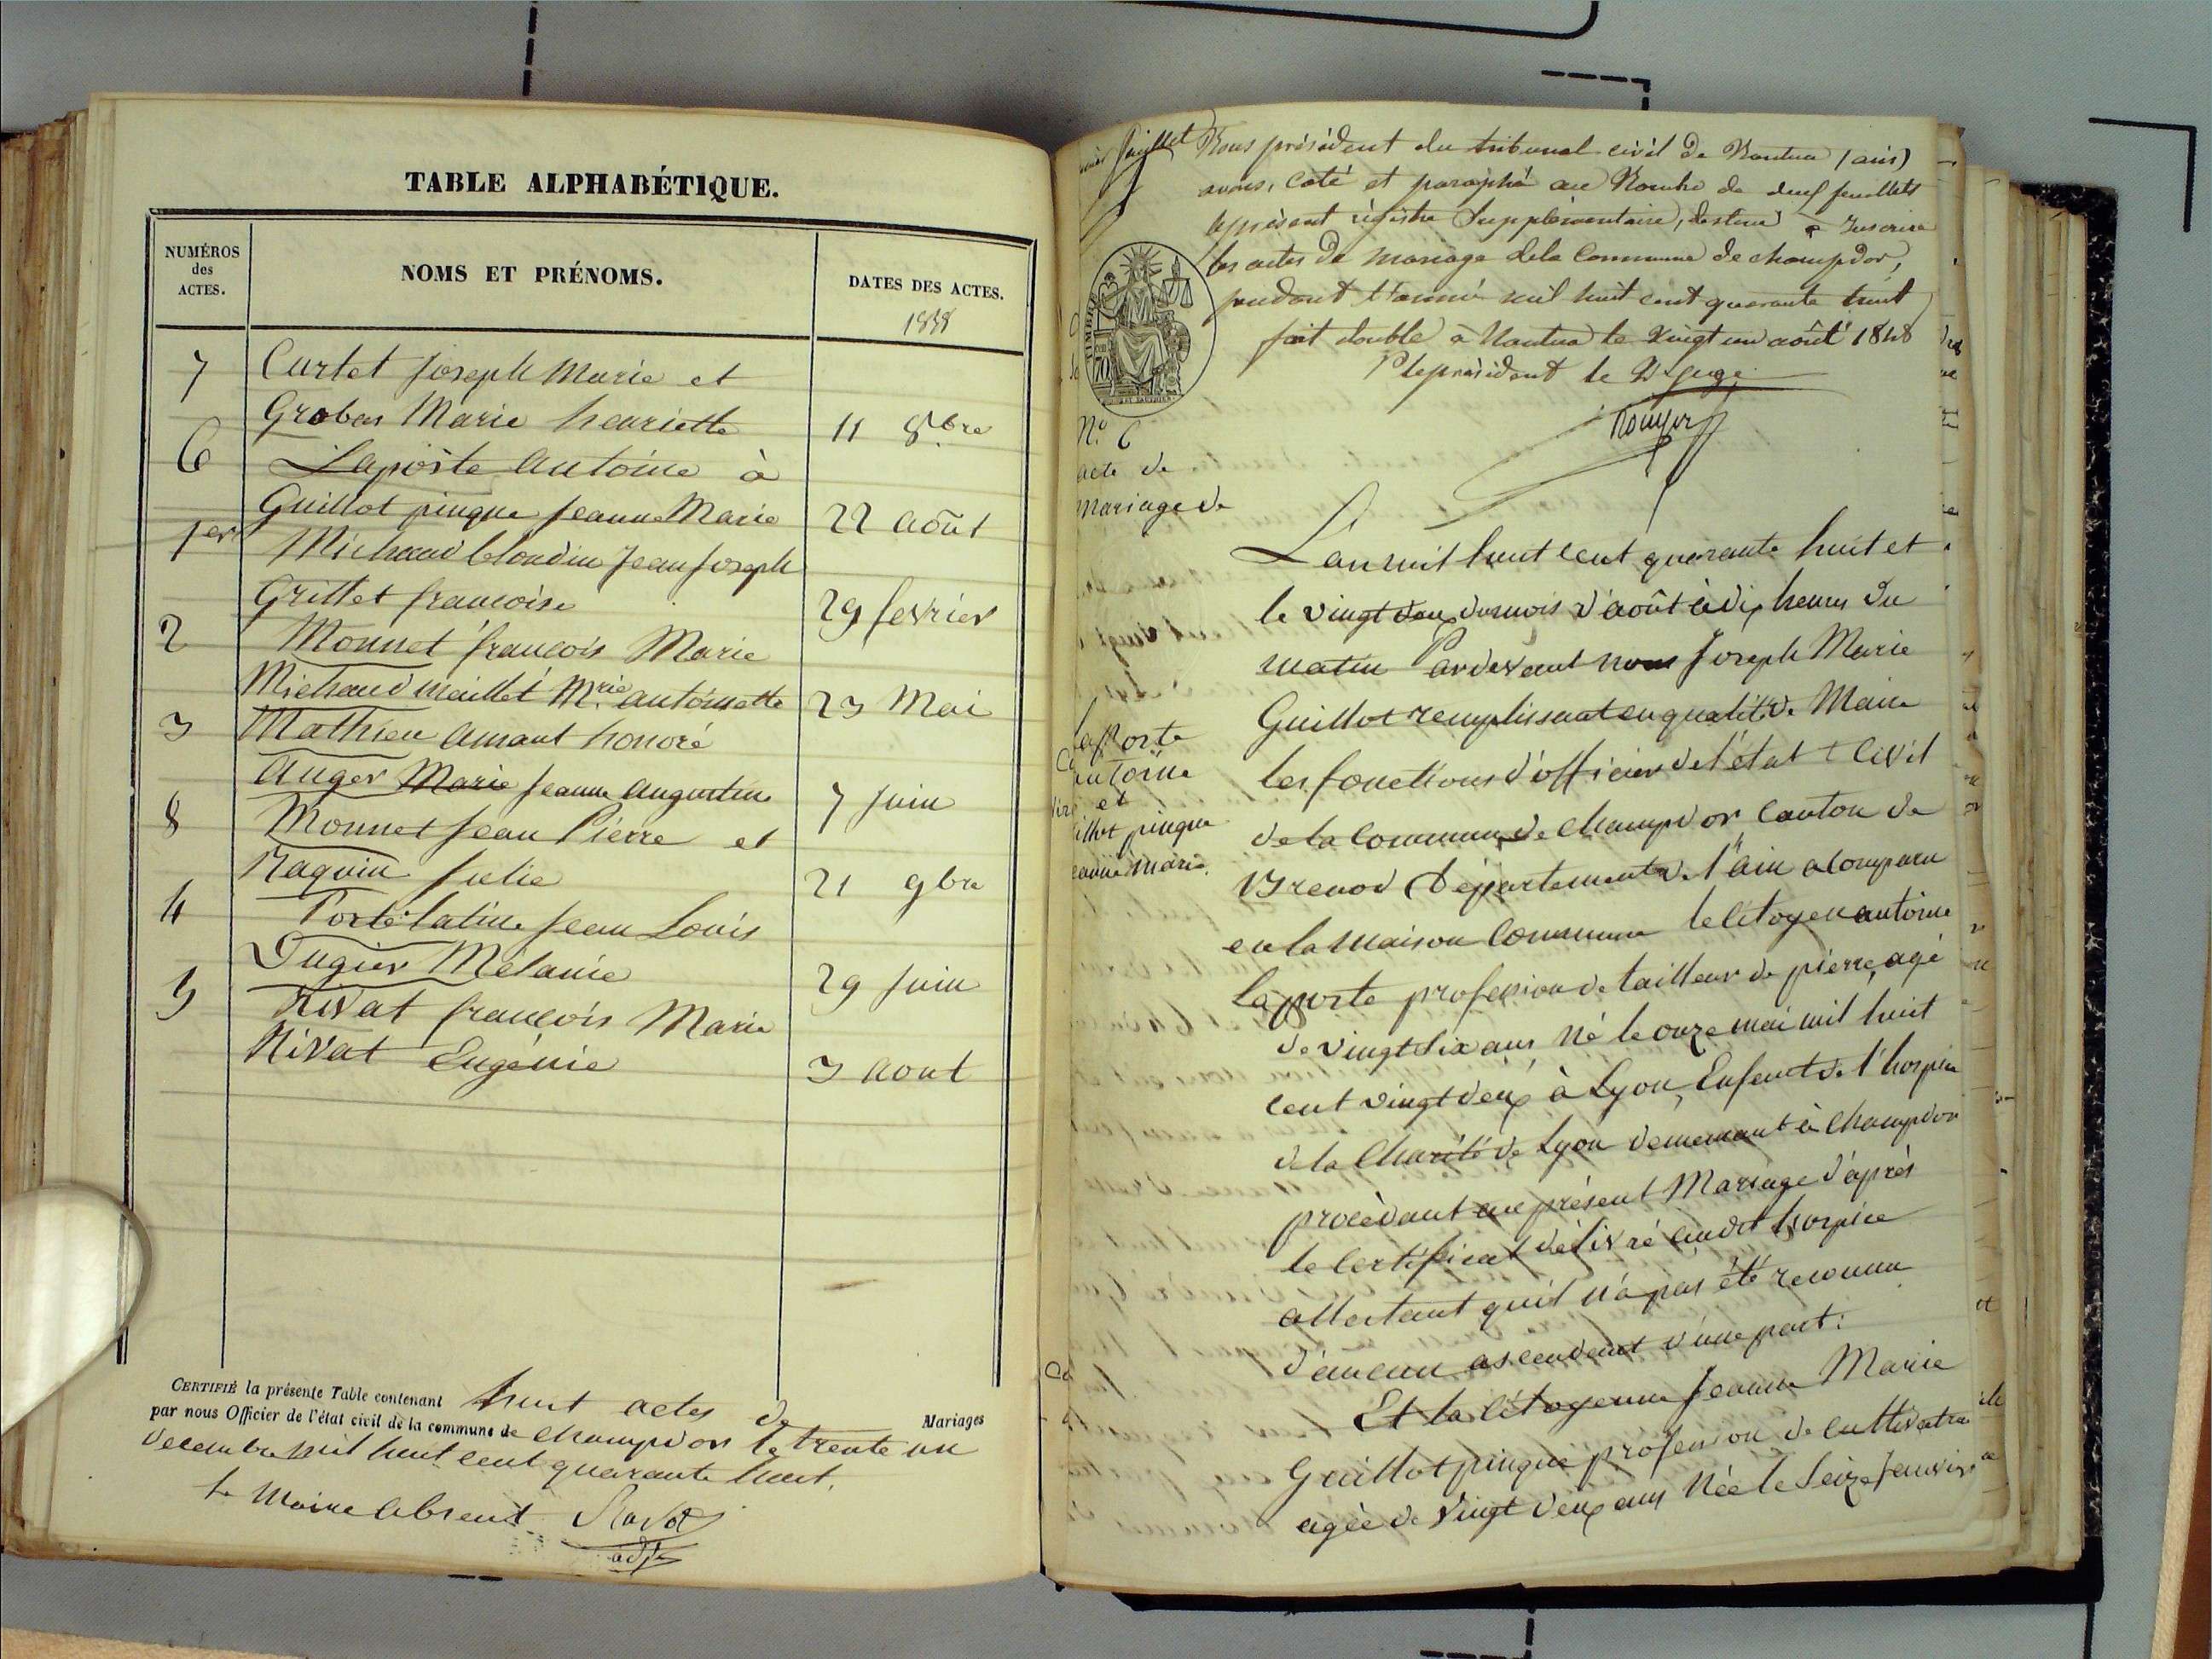 TABLE ALPHABÉTIQUE.
NUMÉROS
des
ACTES.
NOMS ET PRÉNOMS.
DATES DES ACTES.
1848
7 Curlet Joseph Marie et
Grobas Marie henriette 11 8bre
6 Laporte antoine à
Guillot pingue Jeanne Marie 22 août
1er Michaud blondin Jean Joseph
Grillet francoise 29 fevrier
2 Monnet françois Marie
Michaud maillet Mrie antoinette 23 Mai
3 Mathieu amant honoré
Auger Marie Jeanne augustine 7 Juin
8 Monnet Jean Pierre et
Raquin Julie 21 9bre
4 Porte latine Jean Louis
Dugier Mélanie 29 Juin
5 Rivat françois Marie
Nivat Eugénie 3 aout
CERTIFIÉ la présente Table contenant huit actes de Mariages
par nous Officier de l'état civil de la commune de Champdor le trente un
décembre mil huit cent quarante huit.
le Maire absent
adjt
Juillet
Nous président du tribunal civil de Nantua (ain)
avons, coté et paraphé au Nombre de deux feuillets
le présent régistre Supplémentaire, destiné à Inscrire
les actes de mariage dela Commune de champdor,
pendant l'année mil huit cent quarante huit
fait double à Nantua le vingt un août 1848
P le président le Juge
TIMBRE
70
No 6
acte de
Mariage de
laPorte
antoine
et
illot pingue
eanne marie.
L'an mil huit cent quarante huit et
le vingt deux du mois d'août à dix heures du
matin Pardevant nous Joseph Marie
Guillot remplissant en qualité de Maire
les fonctions d'officier de l'état Civil
de la commune de Champdor Canton de
Brenod Département de l'ain a comparu
en la maison Commune le citoyen antoine
Laporte profession de tailleur de pierre, agé
de vingt six ans né le onze mai mil huit
cent vingt deux à Lyon, Enfant de l'hospice
de la Charité de Lyon demeurant à Champdor
procédant au présent Mariage d'après
le Certificat délivré audit hospice
attestant qu'il n'a pas été reconnu
d'aucun ascendant d'une part:
Et la citoyenne Jeanne Marie
Guillot pingue profession de cultivatrice
agée de vingt deux ans Née le Seize Janvier